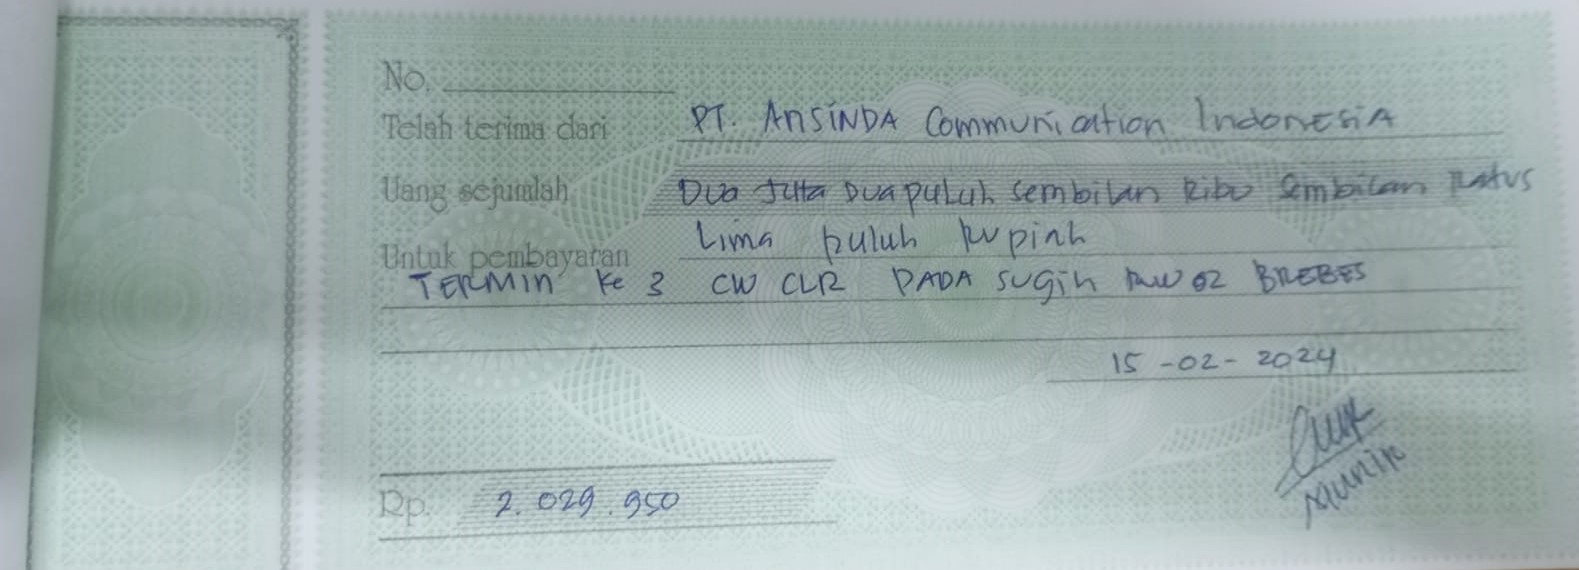 No.
Telah terima dari PT. ANSINDA Communication IndonESIA
Uang sejumlah Dua Juta Dua puluh sembilan Ribu Sembilan Ratus
Lima puluh Rupiah
Untuk pembayaran
TERMIN Ke 3 CW CLR PADA sugih RW 02 BREBES
15 - 02 - 2024
Munir
Rp. 2.029.950